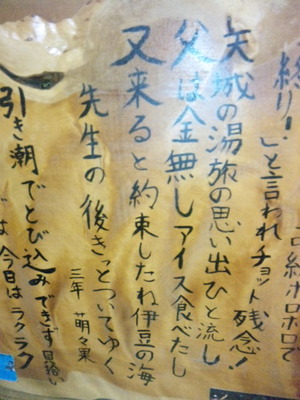 終り!」と言われチョット残念!
矢城の湯旅の思い出ひと流し
父は金無しアイス食べたし
又来ると約束したね伊豆の海
先生の後きっとついてゆく
三年 萌々果
引き潮でとび込みできず
今日はラクラク